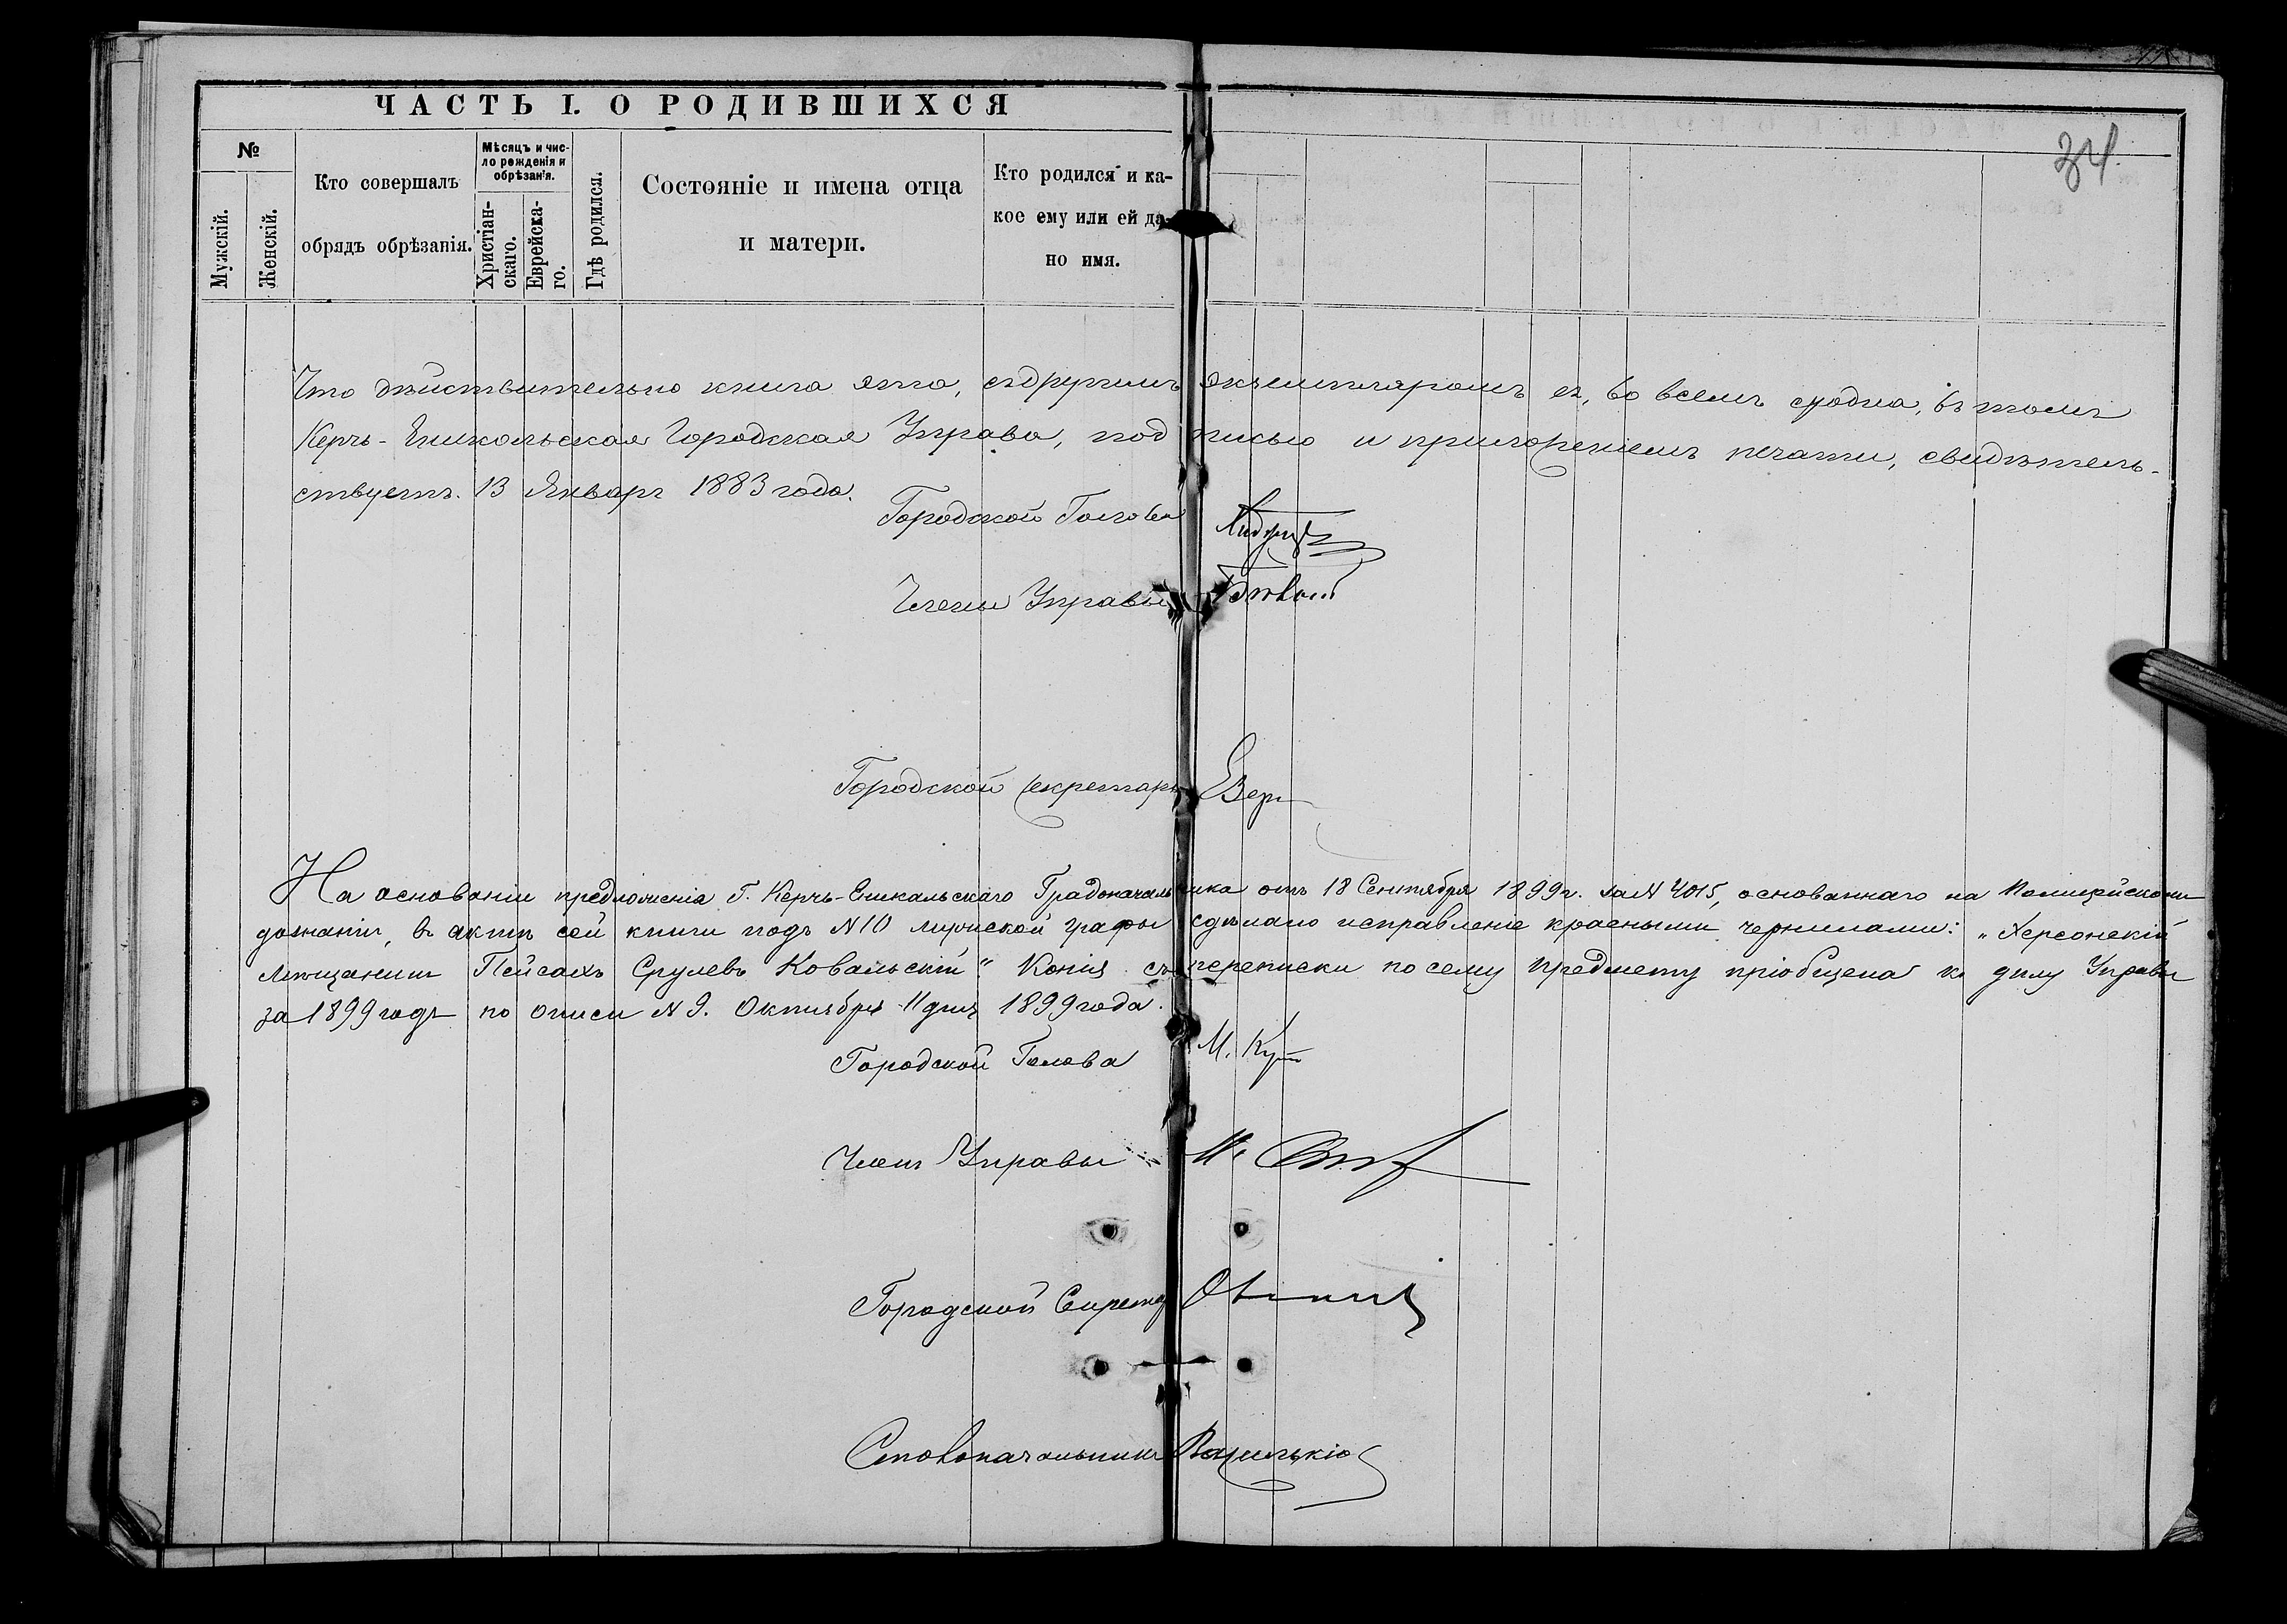 ЧАСТЬ I. О РОДИВШИХСЯ
34.
№
Мужскій.
Женскій.
Кто совершалъ
обрядъ обрѣзанія.
Мѣсяцъ и чис-
ло рожденія и
обрѣзанія.
Христіан-
скаго.
Еврейска-
го.
Гдѣ родился.
Состояніе и имена отца
и матери.
Кто родился и ка-
кое ему или ей да-
но имя.
Что дѣйствительно книга эта, съ другимъ экземпляромъ ея, во всемъ сходна, въ томъ
Керчь-Еникольская Городская Управа, подписью и приложеніемъ печати, свидѣтель-
ствуетъ. 13 Января 1883 года.
Городской Голова
Члены Управы
Городской Секретарь
На основаніи предложенія Г. Керчь-Еникальскаго Градоначальника отъ 18 Сентября 1899 г. за N 4015, основаннаго на Полицейскомъ
дознаніи, въ актѣ сей книги подъ N 10 мужской графы сдѣлано исправленіе красными чернилами: „Херсонскій
Мѣщанинъ Пейсахъ Срулевъ Ковальскій“ Копія съ переписки по сему предмету пріобщена къ дѣлу Управы
за 1899 годъ по описи N 9. Октября 11 дня 1899 года.
Городской Голова М.
Членъ Управы
Городской Секретарь
Столоначальникъ